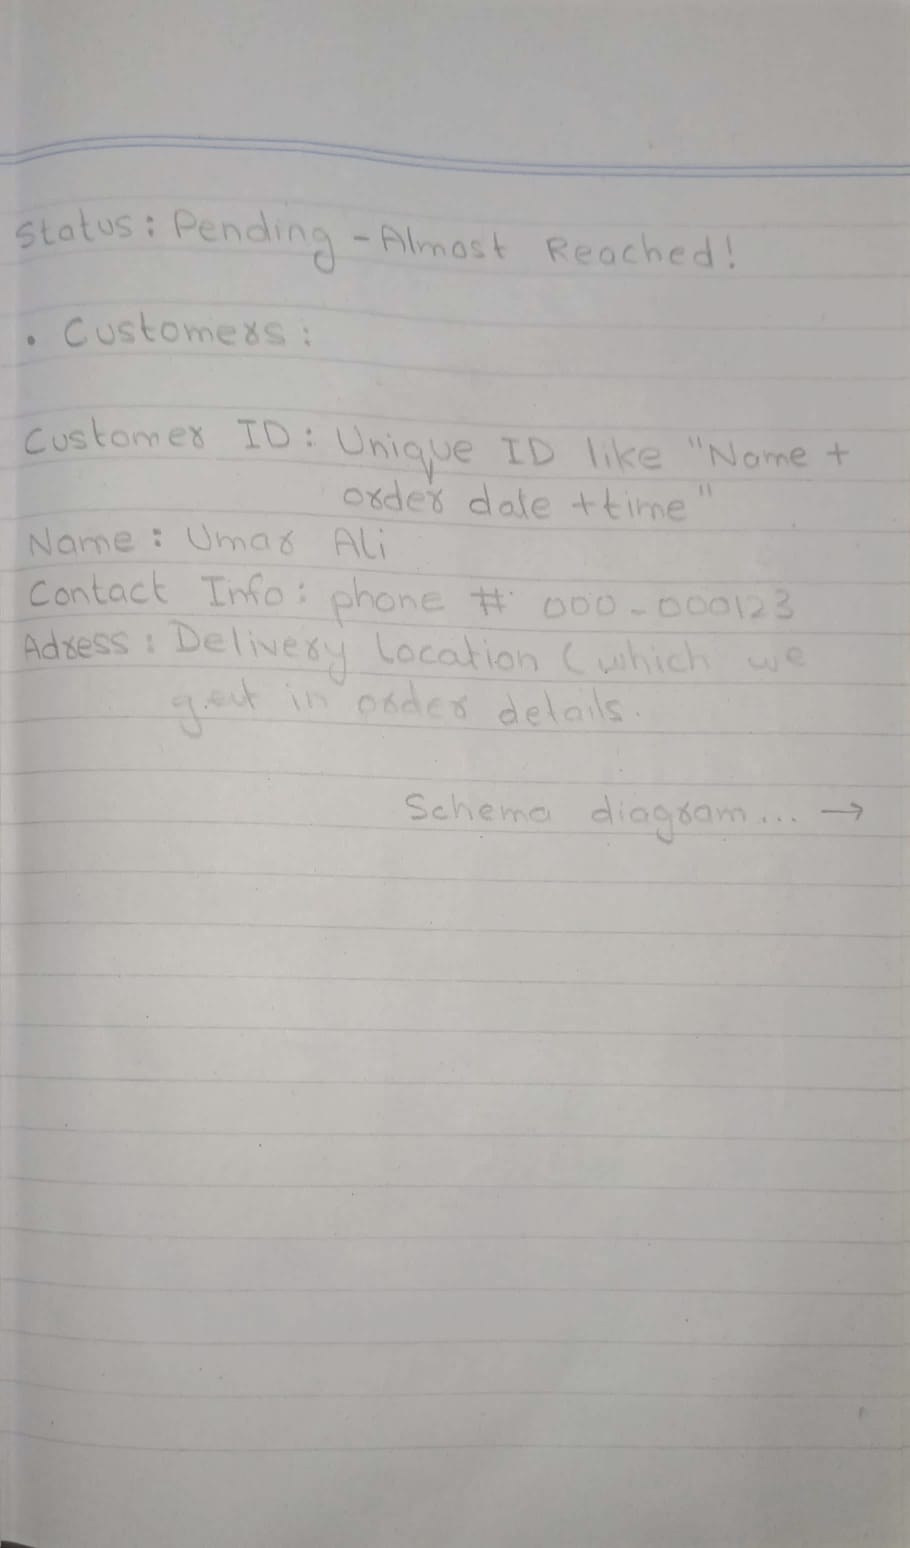 Status: Pending - Almost Reached!
• Customers:
Customer ID: Unique ID like "Name +
order date + time"
Name: Umar Ali
Contact Info: phone # 000-000123
Adress: Delivery Location (which we
get in order details.
Schema diagram... →